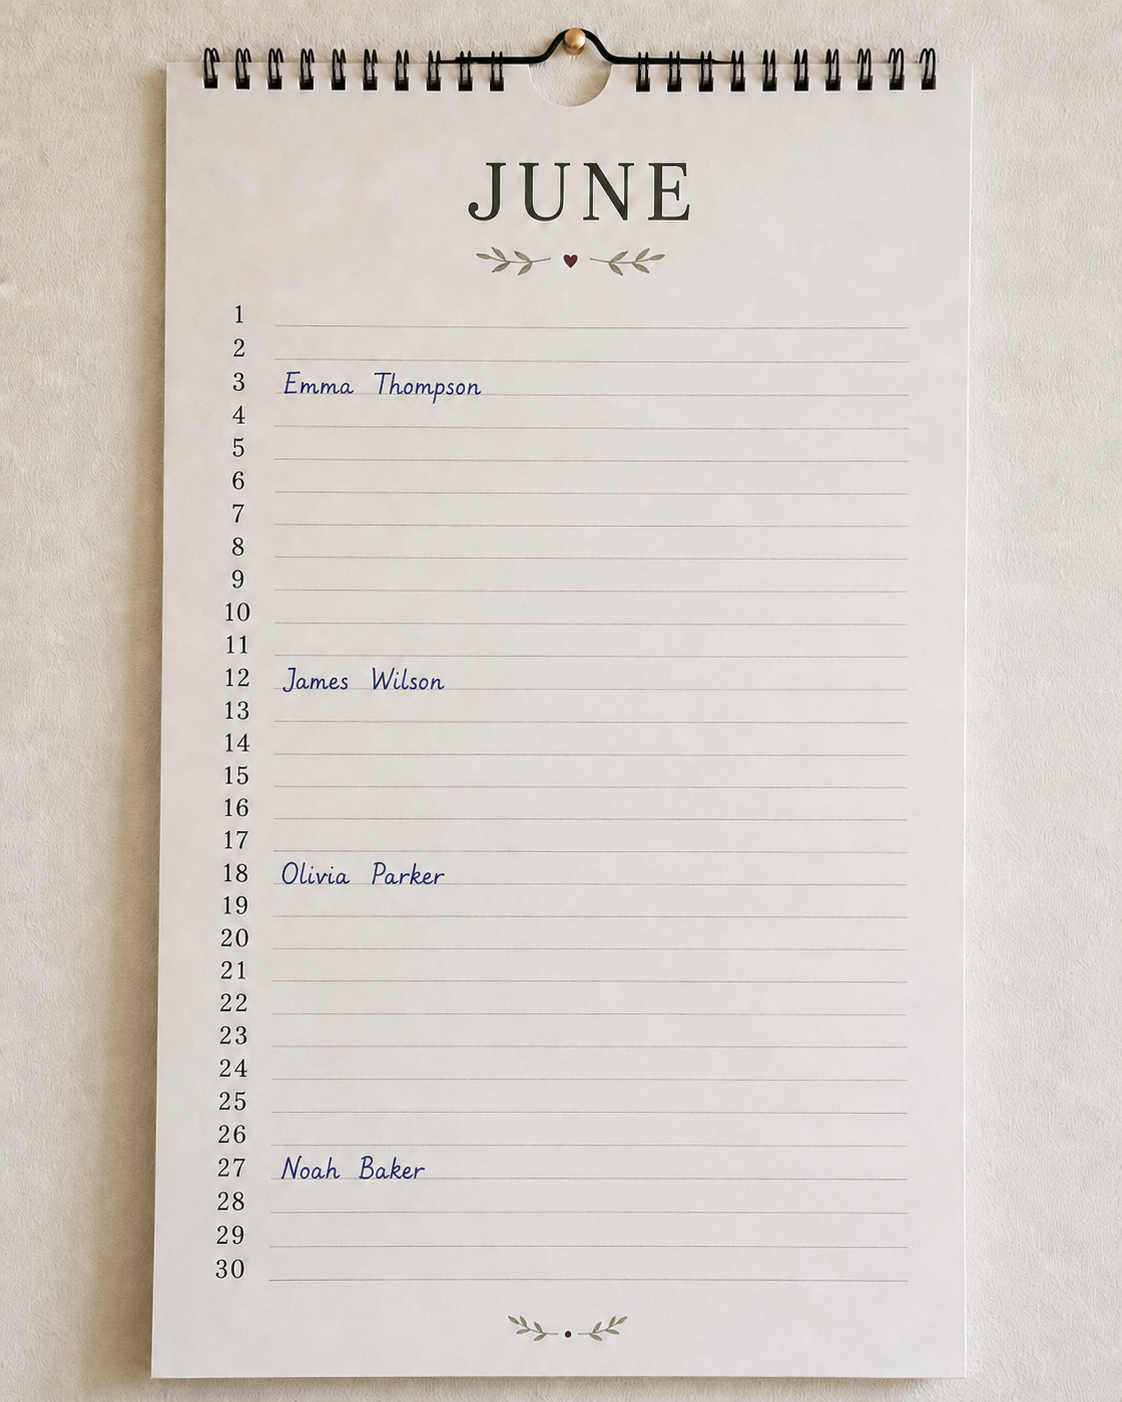 JUNE
1
2
3 Emma Thompson
4
5
6
7
8
9
10
11
12 James Wilson
13
14
15
16
17
18 Olivia Parker
19
20
21
22
23
24
25
26
27 Noah Baker
28
29
30